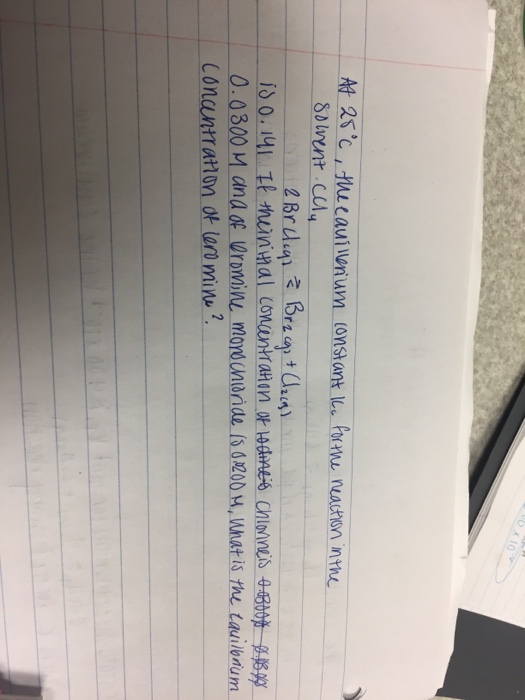 At 25°C, the equilibrium constant Kc for the reaction in the
solvent CCl4
2BrCl(g) ⇌ Br2(g) + Cl2(g)
is 0.141 If the initial concentration of chlorine is
0.0300 M and of bromine monochloride is 0.0200 M, What is the equilibrium
concentration of bromine?